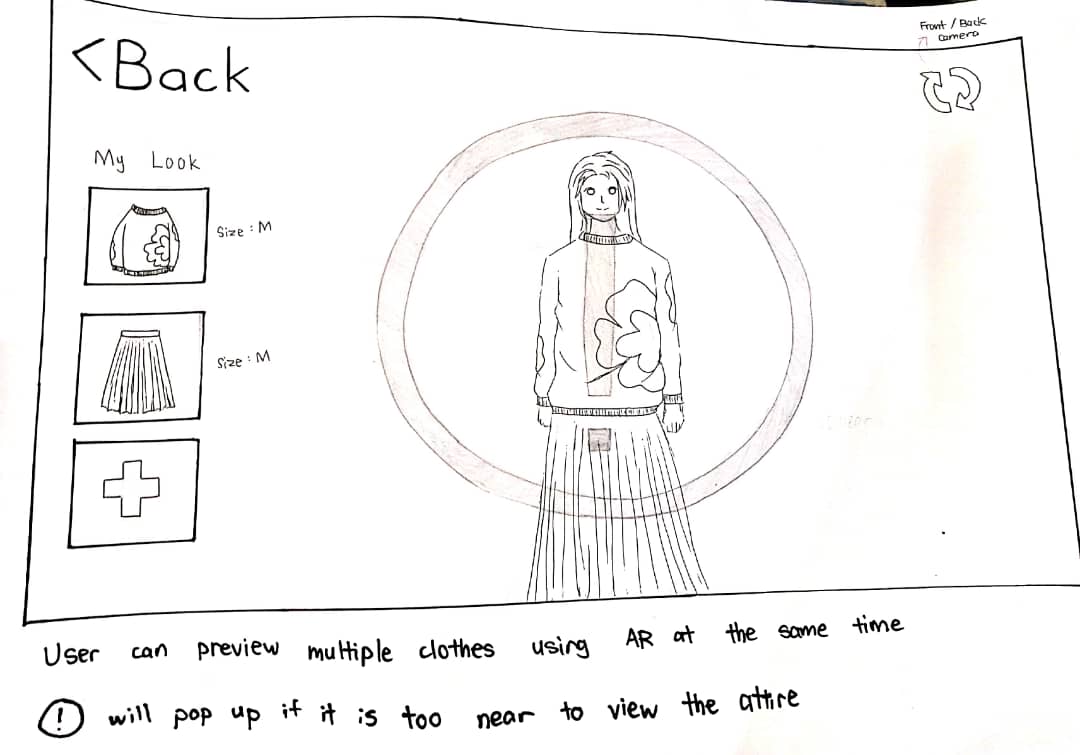 Front / Back
Camera
<Back
My Look
Size : M
Size : M
User can preview multiple clothes using AR at the same time
! will pop up if it is too near to view the attire